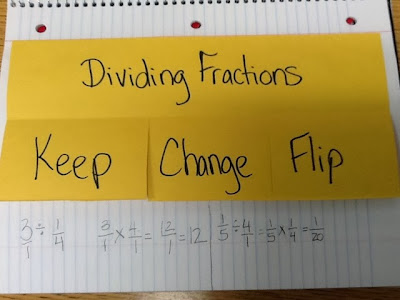 Dividing Fractions
Keep Change Flip
3/1 ÷ 1/4 3/1 × 4/1 = 12/1 = 12 1/5 ÷ 4/1 = 1/5 × 1/4 = 1/20